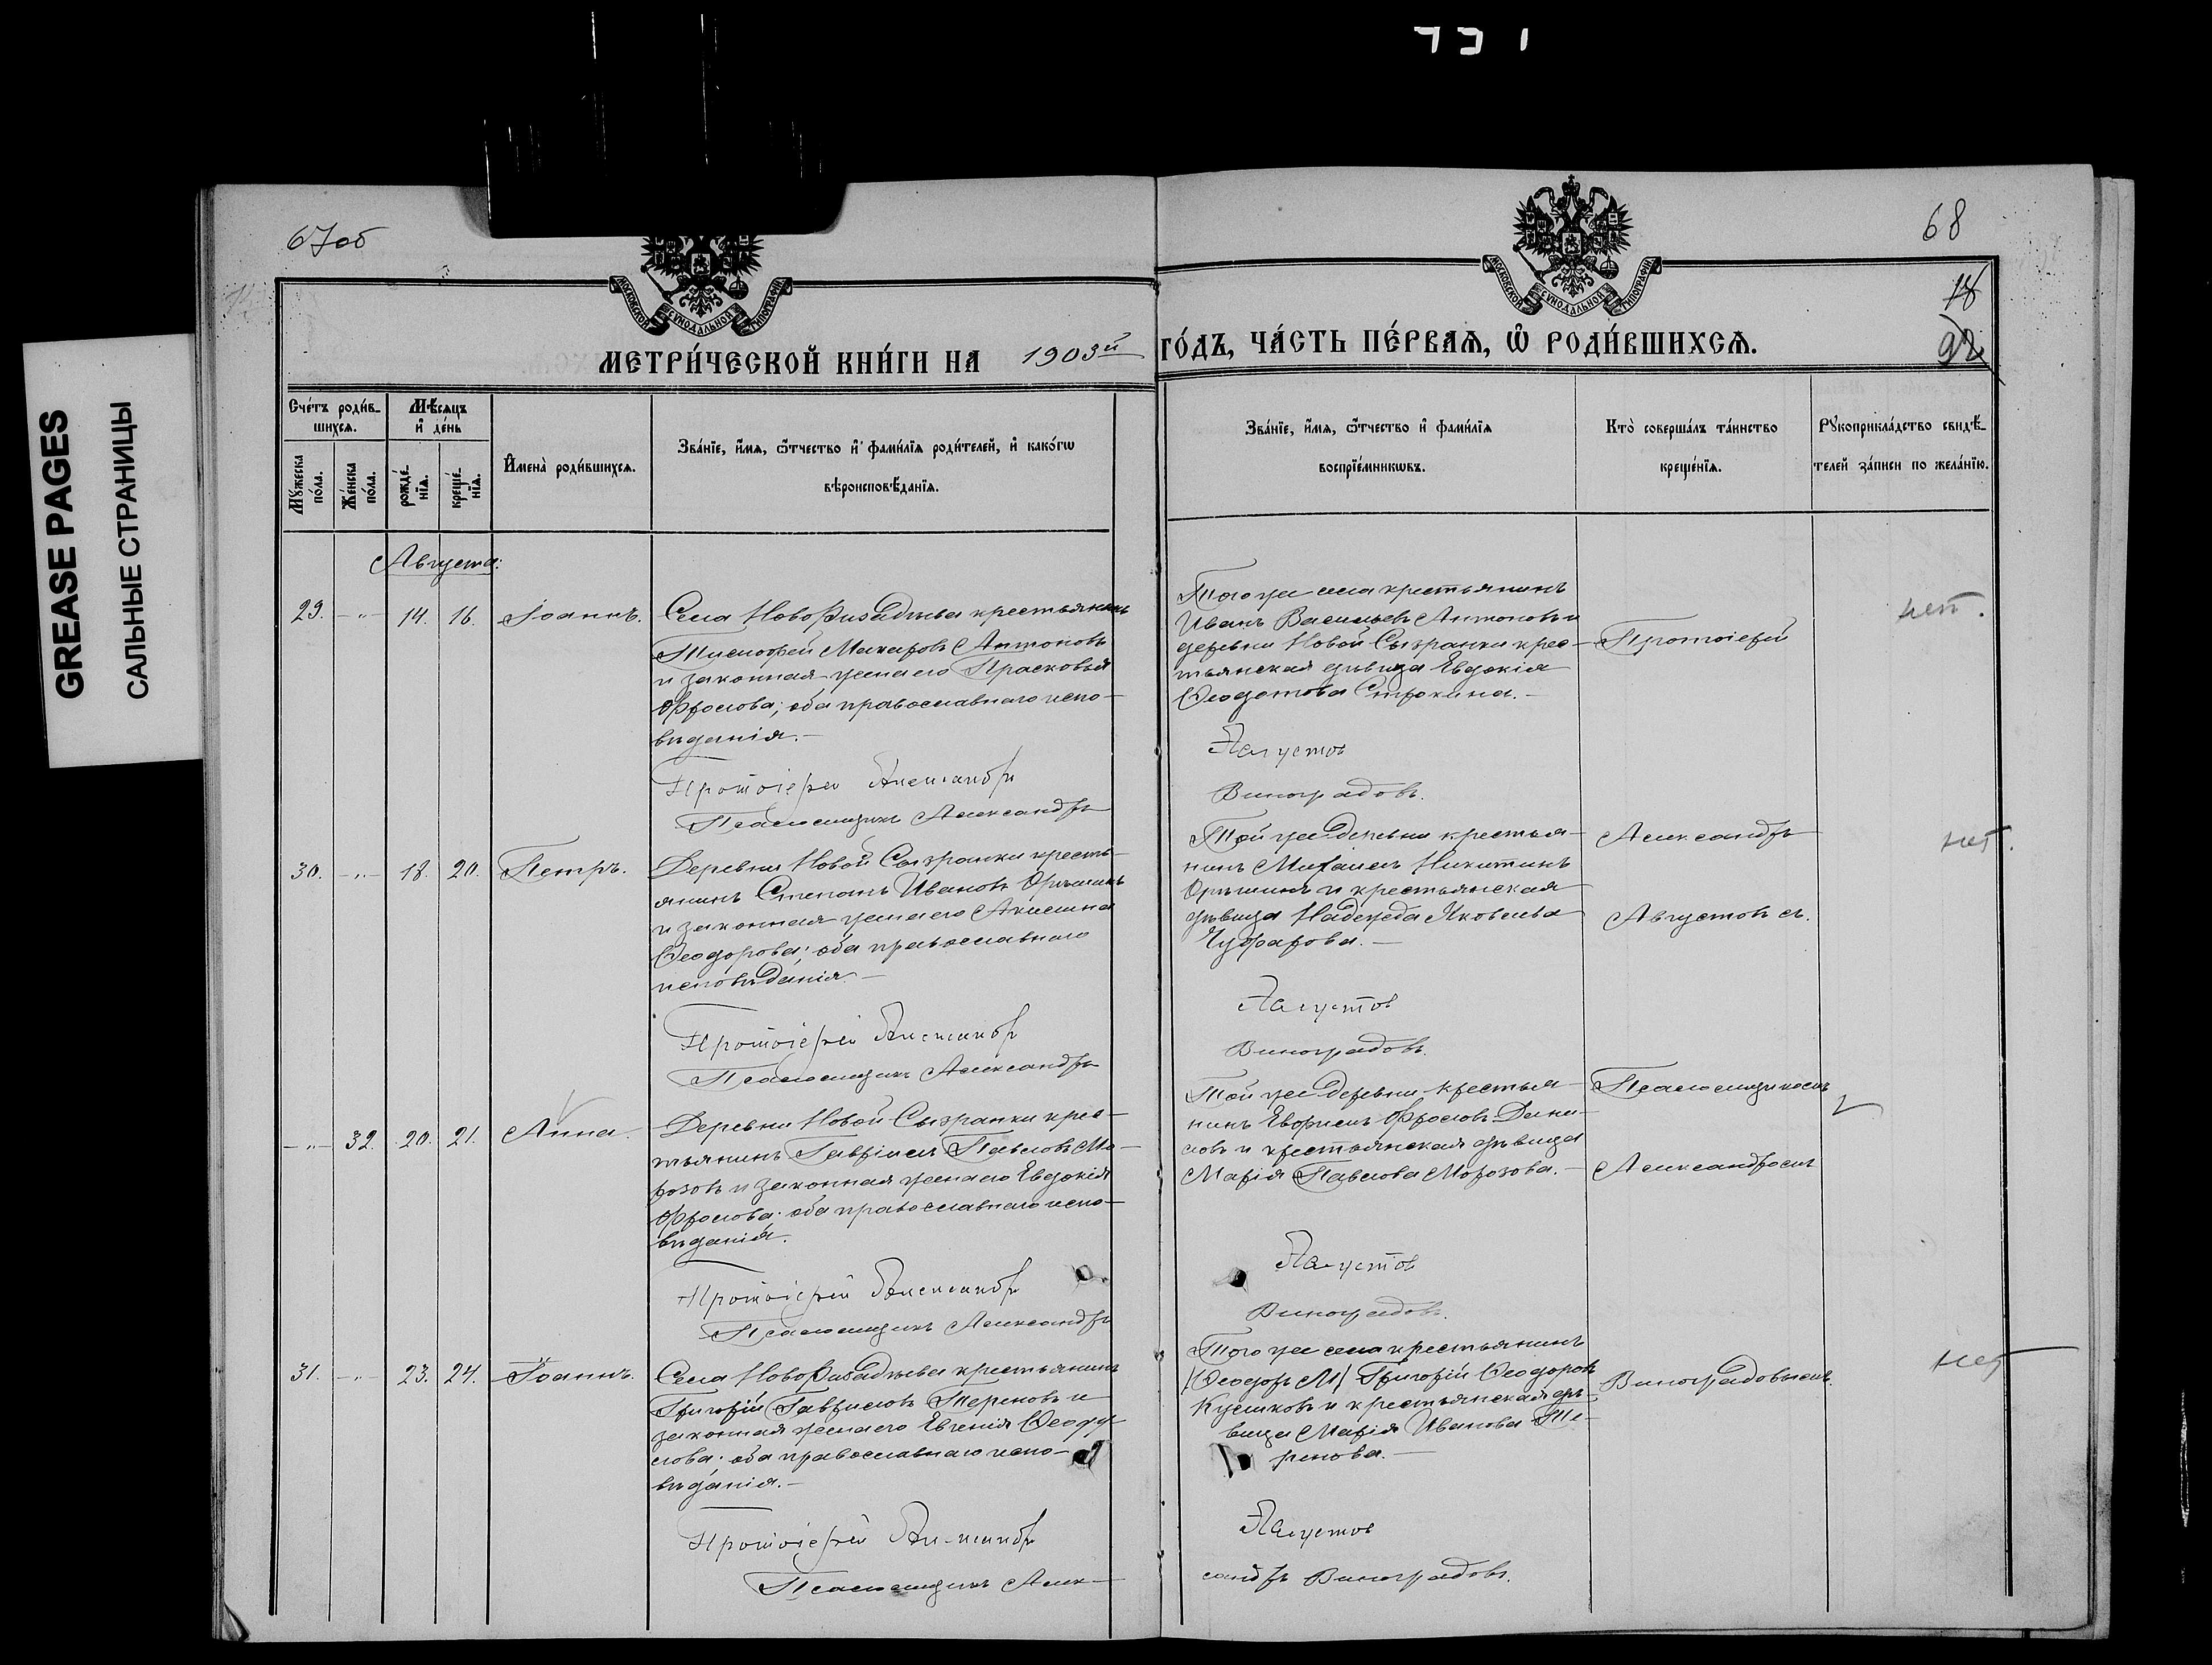 67об
68
18
92
МЕТРИ́ЧЕСКОЙ КНИ́ГИ НА 1903й ГО́ДЪ, ЧА́СТЬ ПЕ́РВАѦ, Ѡ҆ РОДИ́ВШИХСѦ.
МОСКОВСКОЙ СѴНОДАЛЬНОЙ ТИПОГРАФІИ
МОСКОВСКОЙ СѴНОДАЛЬНОЙ ТИПОГРАФІИ
GREASE PAGES
САЛЬНЫЕ СТРАНИЦЫ
Сче́тъ роди́в-
шихсѧ.
Мꙋ́жеска по́ла.
Же́нска по́ла.
Мѣ́сѧцъ и҆ де́нь
рожде́-
нїѧ.
креще́-
нїѧ.
И҆мена̀ роди́вшихсѧ.
Зва́нїе, и҆́мѧ, ѻ҆́тчество и҆ фами́лїѧ роди́телей, и҆ како́гѡ
вѣроисповѣ́данїѧ.
Зва́нїе, и҆́мѧ, ѻ҆́тчество и҆ фами́лїѧ
воспрїе́мникѡвъ.
Кто̀ соверша́лъ та́инство
креще́нїѧ.
Рꙋкоприкла́дство свидѣ́-
телей за́писи по жела́нїю.
Августа:
29. -"- 14. 16. Іоаннъ.
Села НовоФизадѣева крестьянинъ
Тимофей Макаровъ Антоновъ
и законная жена его Прасковья
Фролова; оба православнаго испо-
вѣданія.-
Протоіерей Александръ
Псаломщикъ Александръ
Того же села крестьянинъ
Иванъ Васильевъ Антоновъ и
деревни Новой Сызранки крес-
тьянская дѣвица Евдокія
Ѳеодотова Строкина.-
Августов
Виноградовъ.
Протоіерей
нет.
30. -"- 18. 20. Петръ.
Деревни Новой Сызранки кресть-
янинъ Степанъ Ивановъ Орѣшинъ
и законная жена его Акилина
Ѳеодорова; оба православнаго
исповѣданія.-
Протоіерей Александръ
Псаломщикъ Александръ
Той же деревни крестья-
нинъ Михаилъ Никитинъ
Орѣшинъ и крестьянская
дѣвица Надежда Яковлева
Чуфарова.-
Августов
Виноградовъ.
Александръ
Августовъ съ.
нет.
-"- 32. 20. 21. Анна.
Деревни Новой Сызранки крес-
тьянинъ Гавріилъ Павловъ Мо-
розовъ и законная жена его Евдокія
Фролова; оба православнаго испо-
вѣданія.
Протоіерей Александръ
Псаломщикъ Александръ
Той же деревни крестья-
нинъ Фроловъ Дани-
ловъ и крестьянская дѣвица
Марія Павлова Морозова.-
Августов
Виноградовъ.
Псаломщикомъ
Александромъ
31. -"- 23. 24. Іоаннъ.
Села НовоФизадѣева крестьянинъ
Григорій Гавриловъ Терновъ и
законная жена его Евгенія Ѳеоду-
лова; оба православнаго испо-
вѣданія.-
Протоіерей Александръ
Псаломщикъ Алек-
Того же села крестьянинъ
/Ѳеодоръ М/ Григорій Ѳеодоровъ
и крестьянская дѣ-
вица Марія Иванова Те-
рнова.-
Августов
сандръ Виноградовъ.
Виноградовымъ.
нет